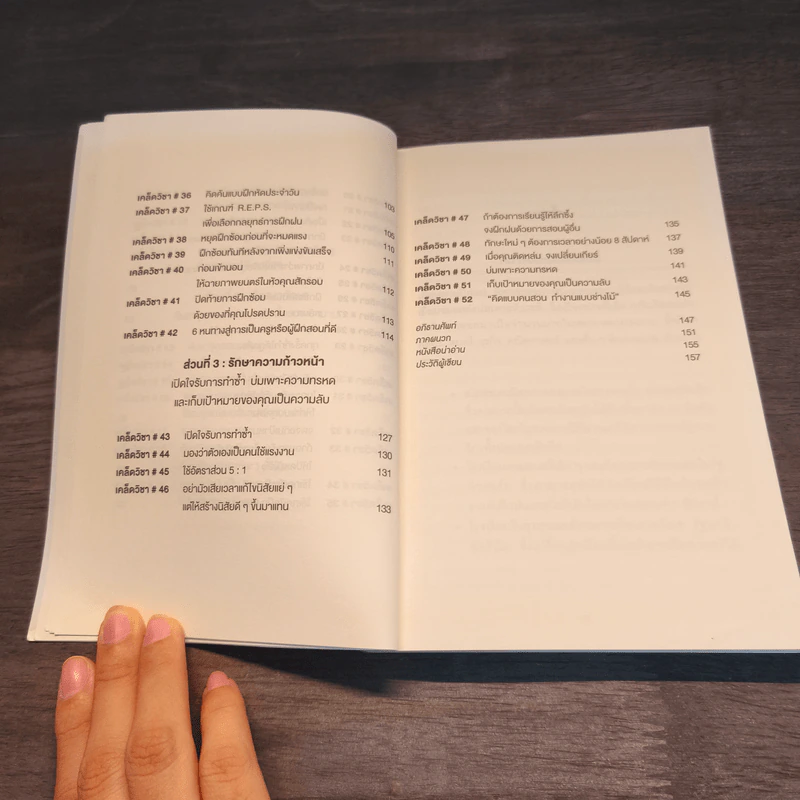 เคล็ดวิชา # 36 คิดค้นแบบฝึกหัดประจำวัน
เคล็ดวิชา # 37 ใช้เกณฑ์ R.E.P.S. 103
เพื่อเลือกกลยุทธ์การฝึกฝน
เคล็ดวิชา # 38 หยุดฝึกซ้อมก่อนที่จะหมดแรง 106
เคล็ดวิชา # 39 ฝึกซ้อมทันทีหลังจากเพิ่งแข่งขันเสร็จ 110
เคล็ดวิชา # 40 ก่อนเข้านอน 111
ให้ฉายภาพยนตร์ในหัวคุณสักรอบ
เคล็ดวิชา # 41 ปิดท้ายการฝึกซ้อม 112
ด้วยของที่คุณโปรดปราน 113
เคล็ดวิชา # 42 6 หนทางสู่การเป็นครูหรือผู้ฝึกสอนที่ดี 114
ส่วนที่ 3 : รักษาความก้าวหน้า
เปิดใจรับการทำซ้ำ บ่มเพาะความทรหด
และเก็บเป้าหมายของคุณเป็นความลับ
เคล็ดวิชา # 43 เปิดใจรับการทำซ้ำ 127
เคล็ดวิชา # 44 มองว่าตัวเองเป็นคนใช้แรงงาน 130
เคล็ดวิชา # 45 ใช้อัตราส่วน 5 : 1 131
เคล็ดวิชา # 46 อย่ามัวเสียเวลาแก้ไขนิสัยแย่ ๆ
แต่ให้สร้างนิสัยดี ๆ ขึ้นมาแทน 133
เคล็ดวิชา # 47 ถ้าต้องการเรียนรู้ให้ลึกซึ้ง
จงฝึกฝนด้วยการสอนผู้อื่น 135
เคล็ดวิชา # 48 ทักษะใหม่ ๆ ต้องการเวลาอย่างน้อย 8 สัปดาห์ 137
เคล็ดวิชา # 49 เมื่อคุณติดหล่ม จงเปลี่ยนเกียร์ 139
เคล็ดวิชา # 50 บ่มเพาะความทรหด 141
เคล็ดวิชา # 51 เก็บเป้าหมายของคุณเป็นความลับ 143
เคล็ดวิชา # 52 “คิดแบบคนสวน ทำงานแบบช่างไม้” 145
อภิธานศัพท์ 147
ภาคผนวก 151
หนังสือน่าอ่าน 155
ประวัติผู้เขียน 157